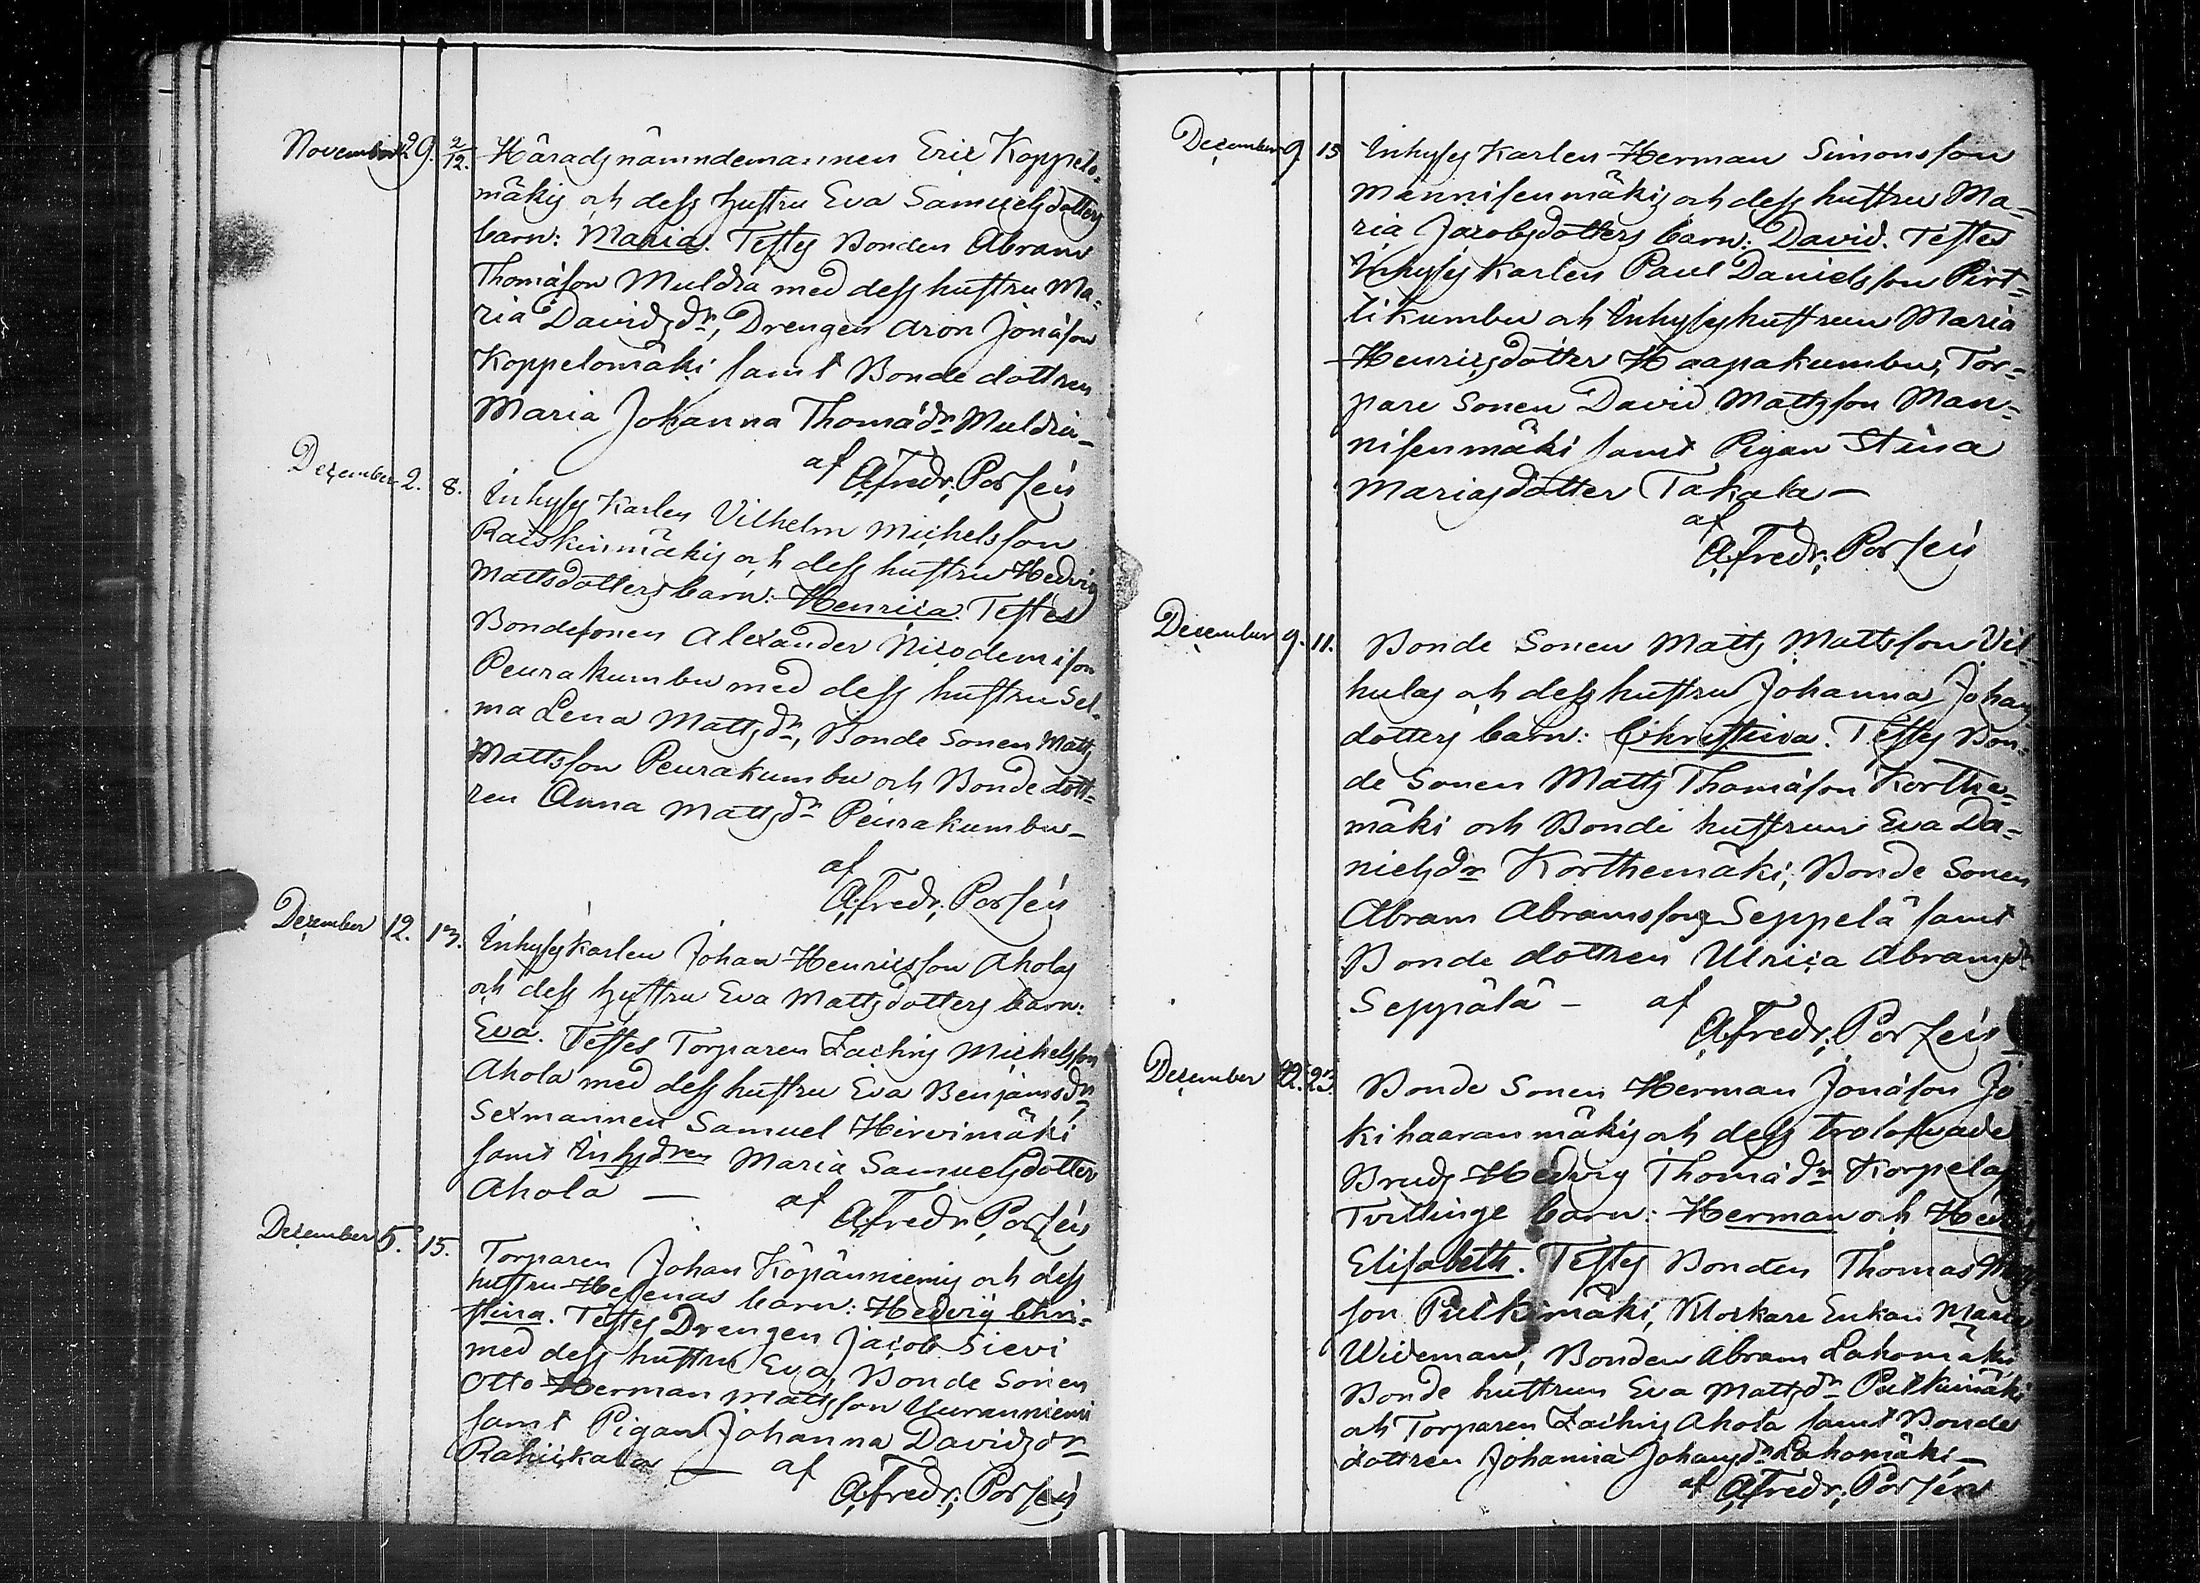 November 29. 2/12. Häradsnämndemannen Eric Koppelo-
mäkis och dess hustru Eva Samuelsdotters
barn: Maria. Testes Bonden Abram
Thomasson Muldia med dess hustru Ma-
ria Davidsdr, Drengen Aron Jonasson
Koppelomäki samt Bonde dottren
Maria Johanna Thomasdr Muldia –
af A. Fredr. Porsén
December 2. 8. Inhyses Karlen Vilhelm Michelsson
Raiskinmäkis och dess hustru Hedvig
Mattsdotters barn: Henrica. Testes
Bondesonen Alexander Nicodemisson
Peurakumbu med dess hustru Sel-
ma Lena Mattsdr, Bonde Sonen Matts
Mattsson Peurakumbu och Bonde dott-
ren Anna Mattsdr Peurakumbu –
af
A. Fredr. Porsén
December 12. 13. Inhyses karlen Johan Henricsson Aholas
och dess hustru Eva Mattsdotters barn:
Eva. Testes Torparen Zachris Michelsson
Ahola med dess hustru Eva Benjamsdr,
Sexmannen Samuel Hirvimäki
samt Inhysdren Maria Samuelsdotter
Ahola — af
A. Fredr. Porsén
December 5. 15. Torparen Johan Köpänniemis och dess
hustru Helenas barn: Hedvig Chri-
stina. Testes Drengen Jacob Sievi
med dess hustru Eva, Bonde Sonen
Otto Herman Mattsson Uuranniemi
samt Pigan Johanna Davidsdr
Rahiikala — af
A. Fredr. Porsén
December 9. 15 Inhyses Karlen Herman Simonsson
Mannisenmäkis och dess hustru Ma-
ria Jacobsdotters barn: David. Testes
Inhyses Karlen Paul Danielsson Pirt-
tikumbu och Inhyses hustrun Maria
Henricsdotter Haapakumbu, Tor-
pare Sonen David Mattsson Man-
nisenmäki samt Pigan Stina
Mariasdotter Takala —
af
A. Fredr. Porsén
December 9. 11. Bonde Sonen Matts Mattsson Vil-
hulas och dess hustru Johanna Johans
dotters barn: Christina. Testes Bon-
de Sonen Matts Thomasson Korthe-
mäki och Bonde hustrun Eva Da-
nielsdr Korthemäki, Bonde Sonen
Abram Abramsson Seppelä samt
Bonde dottren Ulrica Abramsdr
Seppälä – af
A. Fredr. Porsén
December 22. 23. Bonde Sonen Herman Jonasson Jo-
kihaaranmäkis och dess trolofvade
Bruds Hedvig Thomasdr Korpelas
Tvillinge barn: Herman och Hedvig
Elisabeth. Testes Bonden Thomas
son Pulkimäki, Klockare Enkan Maria
Wideman, Bonden Abram Lahomäki
Bonde hustrun Eva Mattsdr Pulkimäki
och Torparen Zachris Ahola samt Bonde
dottren Johanna Johansdr Lahomäki —
af A. Fredr. Porsén